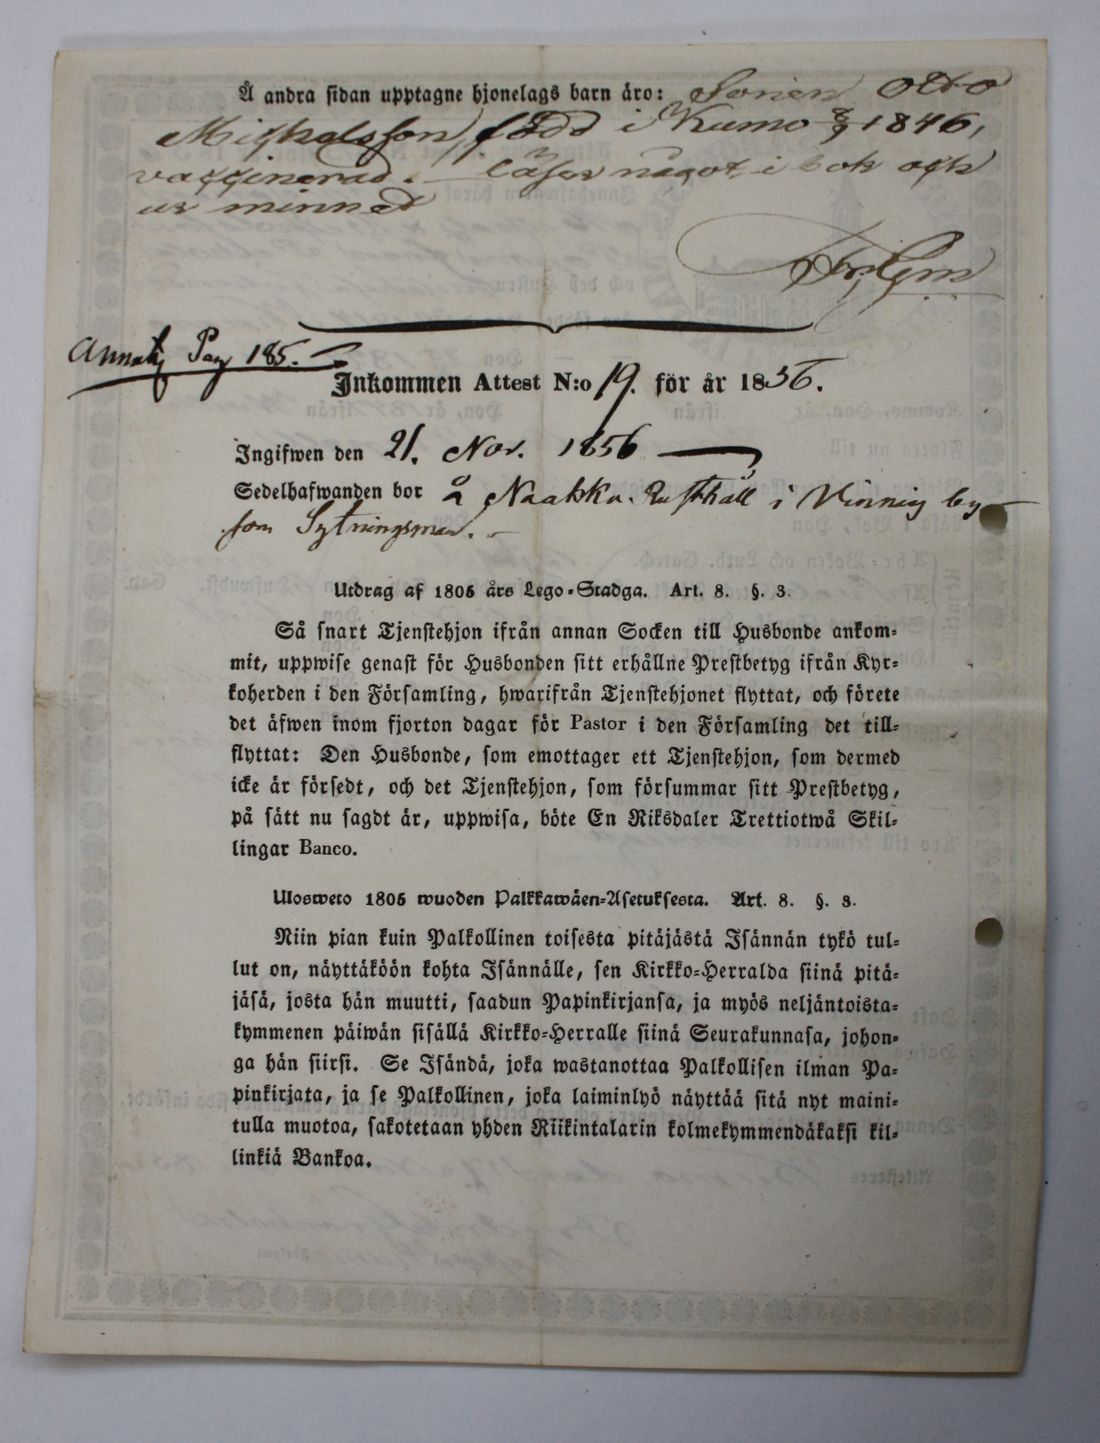 Å andra sidan upptagne hjonelags barn äro: Sonen Otto
Michelsson, född i Kumo 1846,
vaccinerad. läser något i bok och
ur minnet
Annot. Pag 185.
Inkommen Attest N:o 19. för år 1856.
Ingifwen den 21. Nov. 1856
Sedelhafwanden bor å Naakka Rusthåll i Vinnis by
som Sytningsman.
Utdrag af 1805 års Lego-Stadga. Art. 8. §. 3.
Så snart Tjenstehjon ifrån annan Socken till Husbonde ankom-
mit, uppwise genast för Husbonden sitt erhållne Prestbetyg ifrån Kyr-
koherden i den Församling, hwarifrån Tjenstehjonet flyttat, och förete
det äfwen inom fjorton dagar för Pastor i den Församling det till-
flyttat: Den Husbonde, som emottager ett Tjenstehjon, som dermed
icke är försedt, och det Tjenstehjon, som försummar sitt Prestbetyg,
på sätt nu sagdt är, uppwisa, böte En Riksdaler Trettiotwå Skil-
lingar Banco.
Ulosweto 1805 wuoden Palkkawäen-Asetuksesta. Art. 8. §. 3.
Niin pian kuin Palkollinen toisesta pitäjästä Isännän tykö tul-
lut on, näyttäköön kohta Isännälle, sen Kirkko-Herralda siinä pitä-
jäsä, josta hän muutti, saadun Papinkirjansa, ja myös neljäntoista-
kymmenen päiwän sisällä Kirkko-Herralle siinä Seurakunnasa, johon-
ga hän siirsi. Se Isändä, joka wastanottaa Palkollisen ilman Pa-
pinkirjata, ja se Palkollinen, joka laiminlyö näyttää sitä nyt maini-
tulla muotoa, sakotetaan yhden Riikintalarin kolmekymmendäkaksi kil-
linkiä Bankoa.